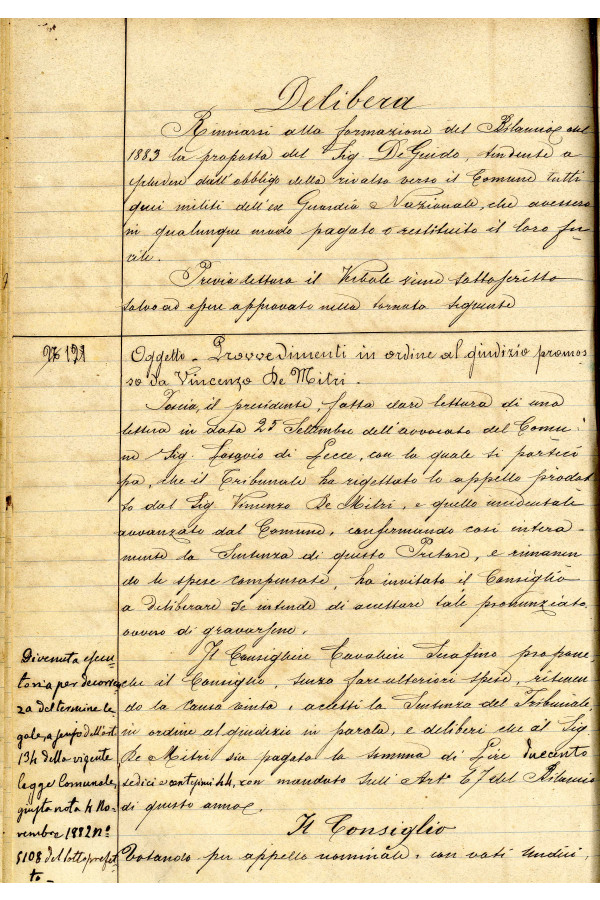 Delibera
Rinviarsi alla formazione del Bilancio del
1883 la proposta del Sig. De Guido, tendente a
escludere dall'obbligo della rivalsa verso il Comune tutti
quei militi dell'ex Guardia Nazionale, che avessero
in qualunque modo pagato o restituito il loro fu-
cile.
Previa lettura il Verbale viene sottoscritto
salvo ad essere approvato nella tornata seguente
No 191
Oggetto - Provvedimenti in ordine al giudizio promos-
so da Vincenzo De Mitri.
Poscia, il presidente, fatta dare lettura di una
lettera in data 25 Settembre dell'avvocato del Comu-
ne Sig. Losavio di Lecce, con la quale si parteci-
pa, che il Tribunale ha rigettato lo appello prodot-
to dal Sig Vincenzo De Mitri, e quello incidentale
avvanzato dal Comune, confermando così intera-
mente la Sentenza di questo Pretore, e rimanen-
do le spese compensate, ha invitato il Consiglio
a deliberare se intende di accettare tale pronunziato,
ovvero di gravarsene.
Il Consigliere Cavaliere Serafino propone,
che il Consiglio, senza fare ulteriori spese, ritenen-
do la causa vinta, accetti la Sentenza del Tribunale,
in ordine al giudizio in parola, e deliberi che al Sig.
De Mitri sia pagata la somma di Lire duecento
sedici e centesimi 44, con mandato sull'Art. 67 del Bilancio
di questo anno.
Il Consiglio
Votando per appello nominale, con voti undici,
Divenuta esecu-
toria per decorren-
za del termine le-
gale, a pensi dell'art
134 della vigente
legge Comunale,
giusta nota 4 No-
vembre 1882 no
5108 del Sottoprefet-
to -